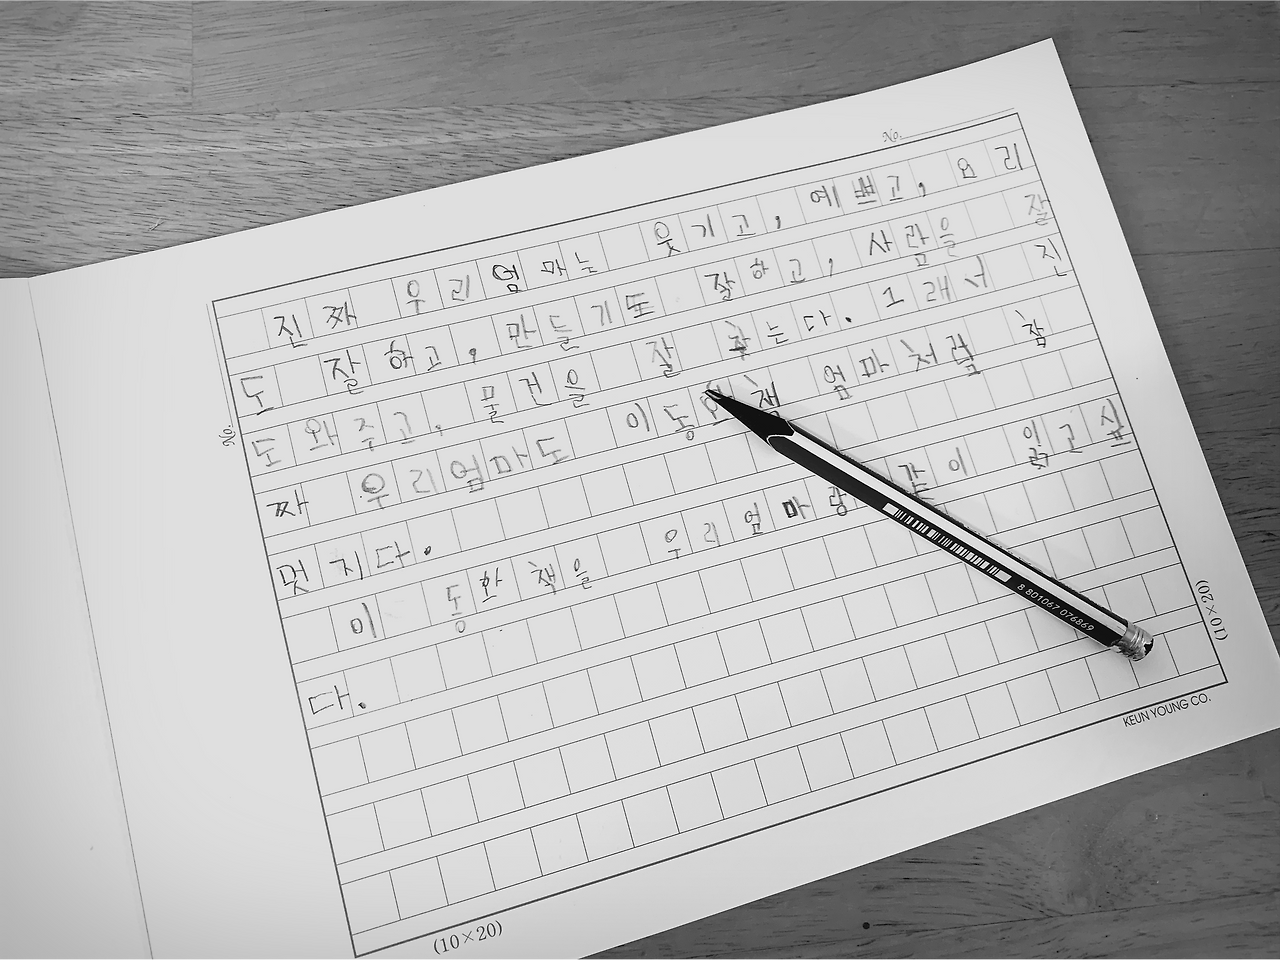 No.
진짜 우리엄마는 웃기고, 예쁘고, 요리
도 잘하고, 만들기도 잘하고, 사람을 잘
도와주고, 물건을 잘 찾는다. 그래서 진
No.
짜 우리엄마도 이동화책 엄마처럼 참
멋지다.
이 동화책을 우리엄마랑 같이 읽고싶
다.
8 801067 076869
(10×20)
KEUN YOUNG CO.
(10×20)